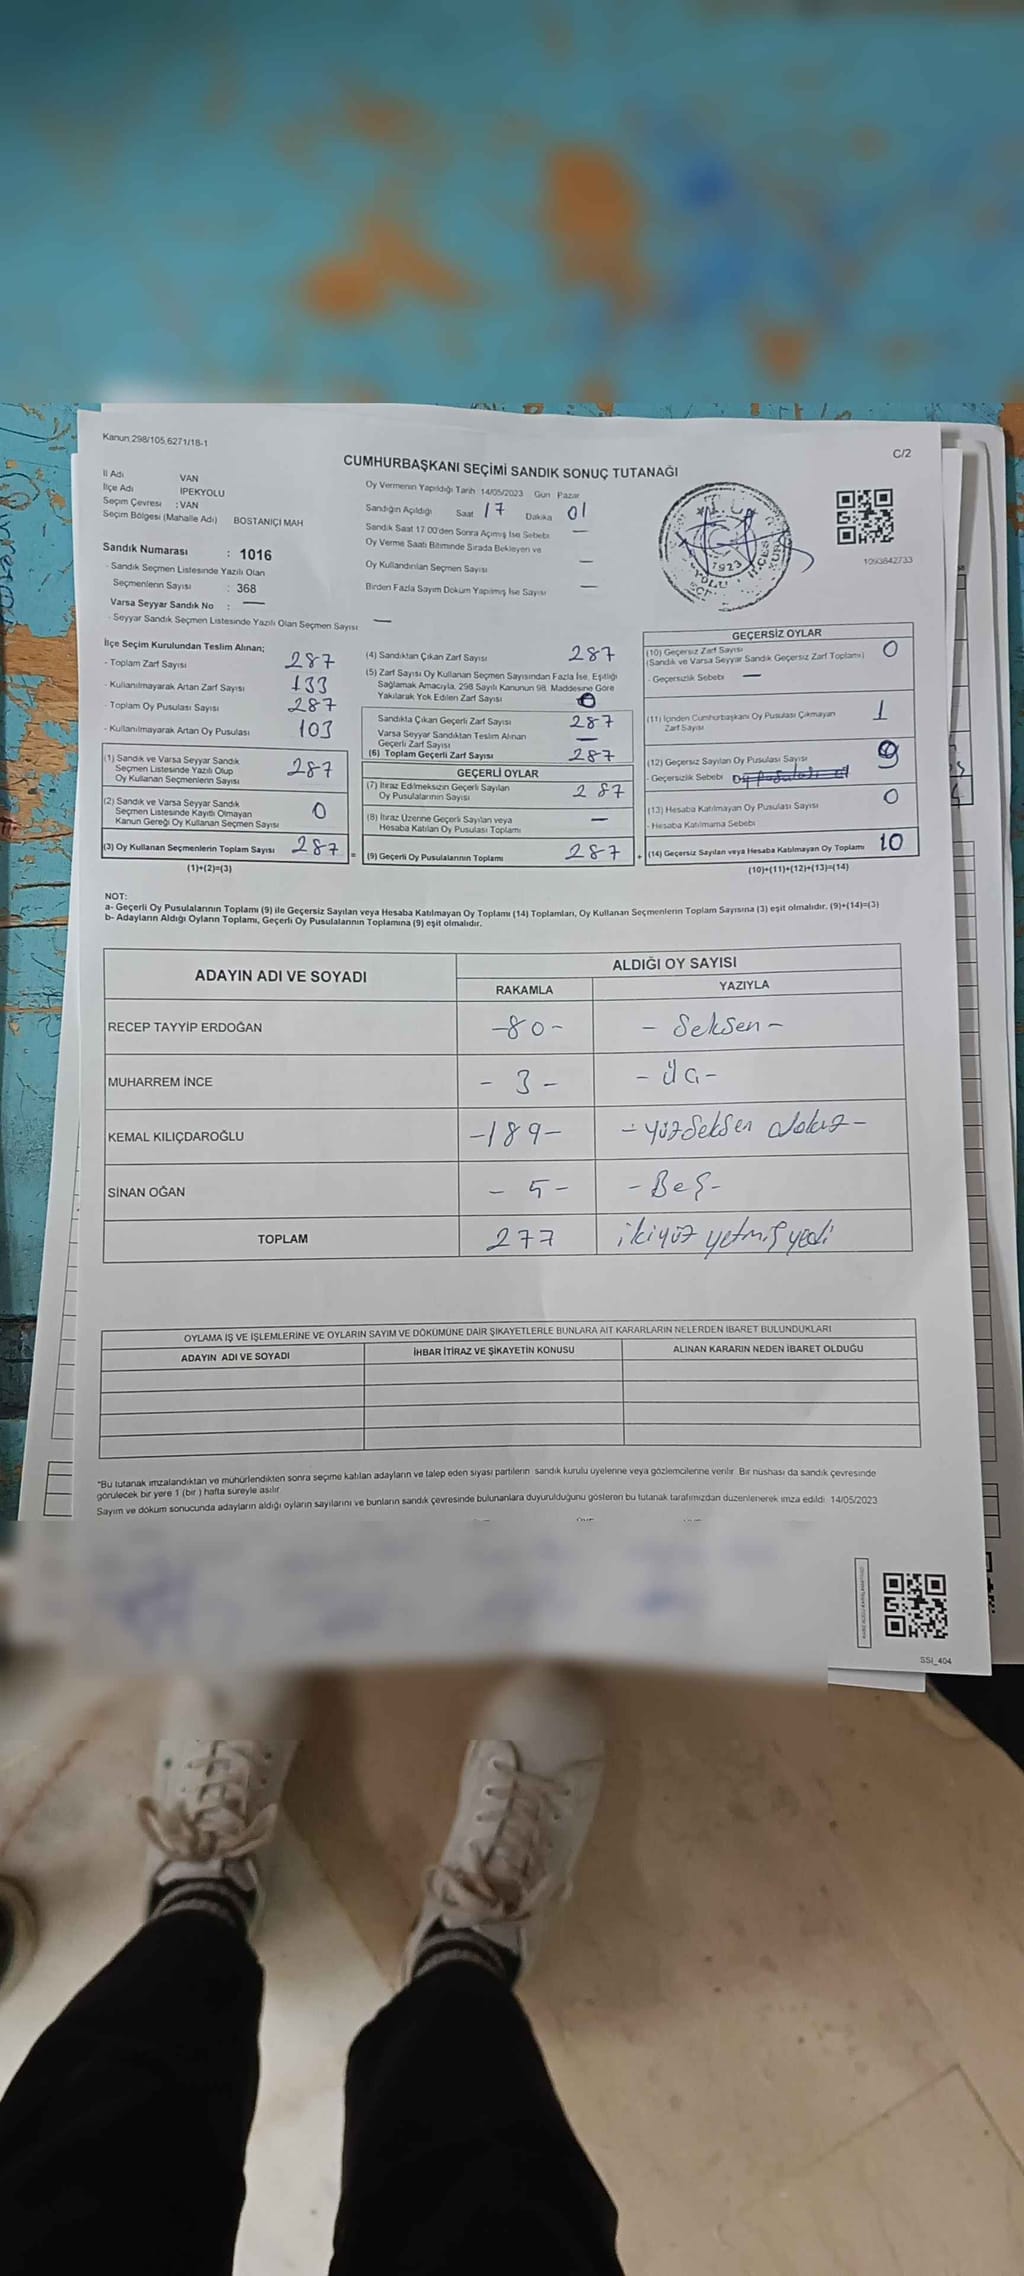 Kanun 298/105,6271/18-1
C/2
CUMHURBAŞKANI SEÇİMİ SANDIK SONUÇ TUTANAĞI
İl Adı VAN
İlçe Adı İPEKYOLU
Seçim Çevresi : VAN
Seçim Bölgesi (Mahalle Adı) BOSTANİÇİ MAH
Oy Vermenin Yapıldığı Tarih 14/05/2023 Gün Pazar
Sandığın Açıldığı Saat 17 Dakika 01
Sandık Saat 17 00'den Sonra Açılmış İse Sebebi —
Oy Verme Saati Bitiminde Sırada Bekleyen ve
Oy Kullandırılan Seçmen Sayısı —
Birden Fazla Sayım Döküm Yapılmış İse Sayısı —
1923
1093842733
Sandık Numarası : 1016
- Sandık Seçmen Listesinde Yazılı Olan
Seçmenlerin Sayısı : 368
Varsa Seyyar Sandık No : —
- Seyyar Sandık Seçmen Listesinde Yazılı Olan Seçmen Sayısı —
İlçe Seçim Kurulundan Teslim Alınan;
- Toplam Zarf Sayısı 287
- Kullanılmayarak Artan Zarf Sayısı 133
- Toplam Oy Pusulası Sayısı 287
- Kullanılmayarak Artan Oy Pusulası 103
(1) Sandık ve Varsa Seyyar Sandık
Seçmen Listesinde Yazılı Olup
Oy Kullanan Seçmenlerin Sayısı 287
(2) Sandık ve Varsa Seyyar Sandık
Seçmen Listesinde Kayıtlı Olmayan
Kanun Gereği Oy Kullanan Seçmen Sayısı 0
(3) Oy Kullanan Seçmenlerin Toplam Sayısı 287 =
(1)+(2)=(3)
(4) Sandıktan Çıkan Zarf Sayısı 287
(5) Zarf Sayısı Oy Kullanan Seçmen Sayısından Fazla İse, Eşitliği
Sağlamak Amacıyla, 298 Sayılı Kanunun 98. Maddesine Göre
Yakılarak Yok Edilen Zarf Sayısı 0
Sandıkta Çıkan Geçerli Zarf Sayısı 287
Varsa Seyyar Sandıktan Teslim Alınan
Geçerli Zarf Sayısı —
(6) Toplam Geçerli Zarf Sayısı 287
GEÇERLİ OYLAR
(7) İtiraz Edilmeksizin Geçerli Sayılan
Oy Pusulalarının Sayısı 287
(8) İtiraz Üzerine Geçerli Sayılan veya
Hesaba Katılan Oy Pusulası Toplamı —
(9) Geçerli Oy Pusulalarının Toplamı 287 +
GEÇERSİZ OYLAR
(10) Geçersiz Zarf Sayısı 0
(Sandık ve Varsa Seyyar Sandık Geçersiz Zarf Toplamı)
- Geçersizlik Sebebi —
(11) İçinden Cumhurbaşkanı Oy Pusulası Çıkmayan
Zarf Sayısı 1
(12) Geçersiz Sayılan Oy Pusulası Sayısı 9
- Geçersizlik Sebebi
(13) Hesaba Katılmayan Oy Pusulası Sayısı 0
- Hesaba Katılmama Sebebi
(14) Geçersiz Sayılan veya Hesaba Katılmayan Oy Toplamı 10
(10)+(11)+(12)+(13)=(14)
NOT:
a- Geçerli Oy Pusulasının Toplamı (9) ile Geçersiz Sayılan veya Hesaba Katılmayan Oy Toplamı (14) Toplamları, Oy Kullanan Seçmenlerin Toplam Sayısına (3) eşit olmalıdır. (9)+(14)=(3)
b- Adayların Aldığı Oyların Toplamı, Geçerli Oy Pusulalarının Toplamına (9) eşit olmalıdır.
ADAYIN ADI VE SOYADI
ALDIĞI OY SAYISI
RAKAMLA YAZIYLA
RECEP TAYYİP ERDOĞAN -80- - Seksen -
MUHARREM İNCE - 3 - - Üç -
KEMAL KILIÇDAROĞLU -189- - yüzseksen dokuz -
SİNAN OĞAN - 5 - - Beş -
TOPLAM 277 ikiyüz yetmiş yedi
OYLAMA İŞ VE İŞLEMLERİNE VE OYLARIN SAYIM VE DÖKÜMÜNE DAİR ŞİKAYETLERLE BUNLARA AİT KARARLARIN NELERDEN İBARET BULUNDUKLARI
ADAYIN ADI VE SOYADI İHBAR İTİRAZ VE ŞİKAYETİN KONUSU ALINAN KARARIN NEDEN İBARET OLDUĞU
"Bu tutanak imzalandıktan ve mühürlendikten sonra seçime katılan adayların ve talep eden siyasi partilerin sandık kurulu üyelerine veya gözlemcilerine verilir. Bir nüshası da sandık çevresinde
görülecek bir yere 1 (bir ) hafta süreyle asılır
Sayım ve döküm sonucunda adayların aldığı oyların sayılarını ve bunların sandık çevresinde bulunanlara duyurulduğunu gösteren bu tutanak tarafımızdan düzenlenerek imza edildi. 14/05/2023
SSİ_404